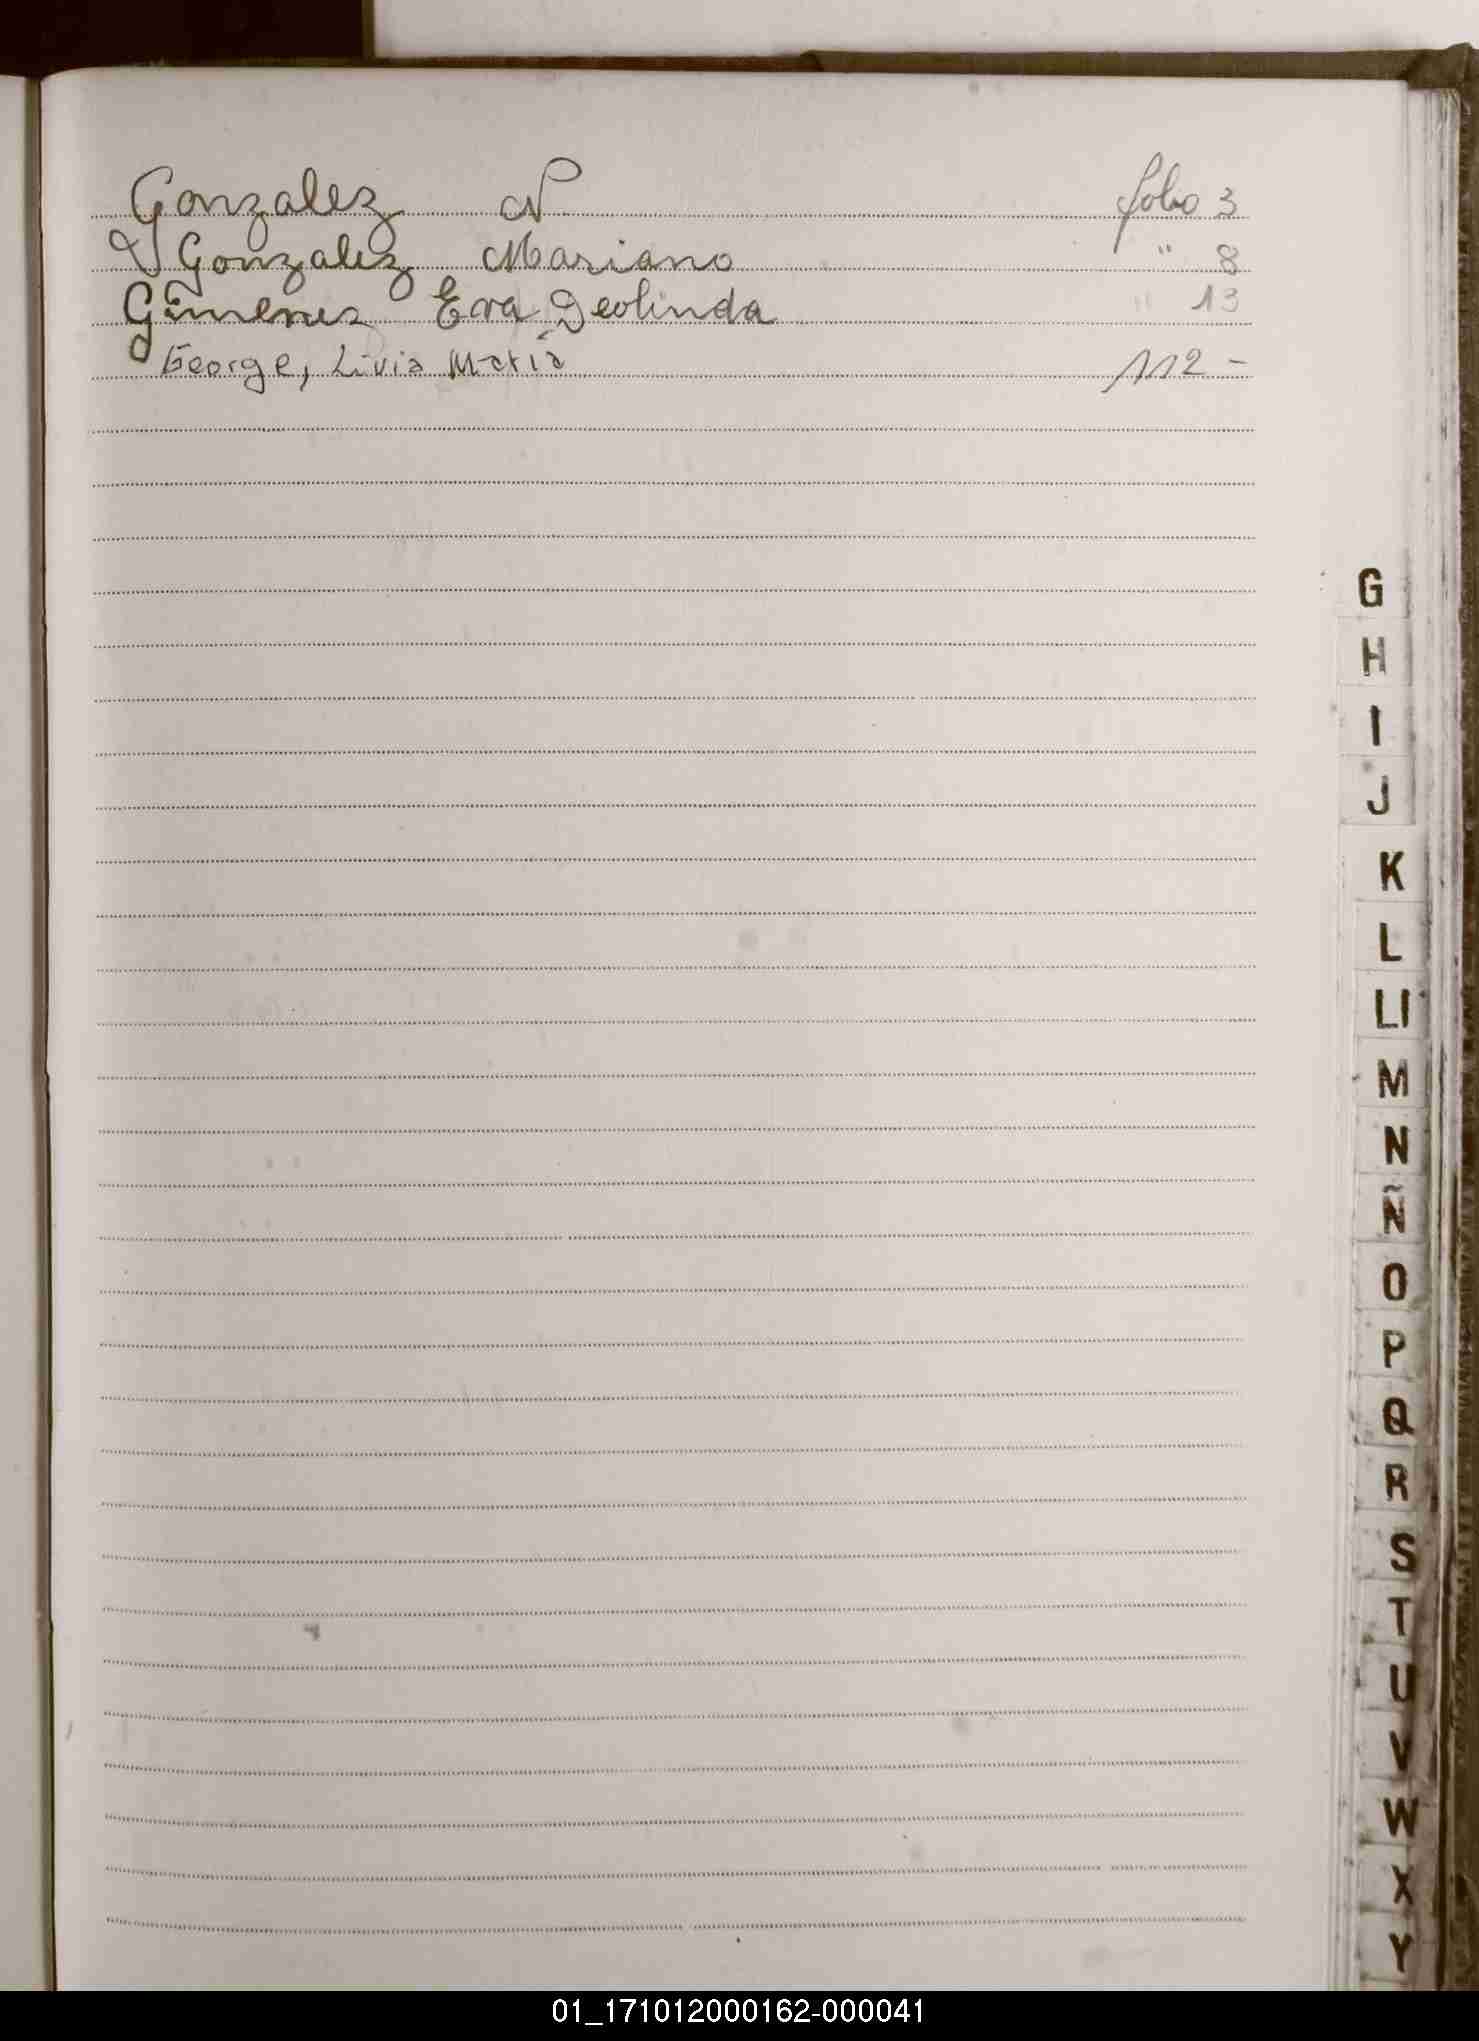 Gonzalez N. folio 3
Gonzalez Mariano " 8
Gimenez Eva Deolinda " 13
George, Livia María 112 -
G
H
I
J
K
L
Ll
M
N
Ñ
O
P
Q
R
S
T
U
V
W
X
Y
01_171012000162-000041